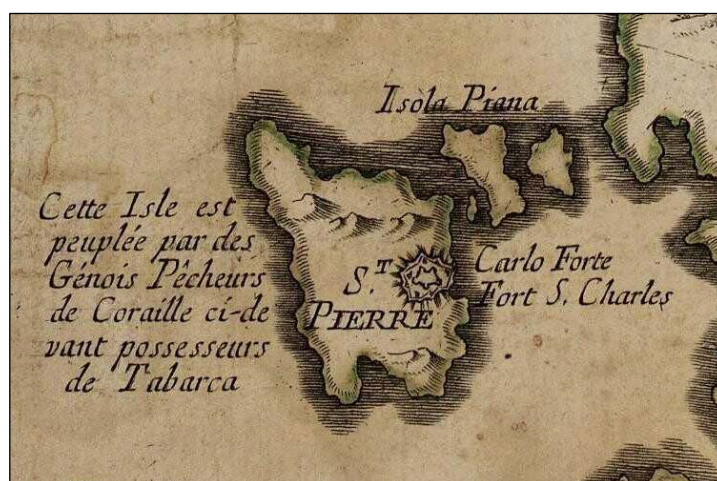 Isola Piana
Cette Isle est
peuplée par des
Génois Pêcheurs
de Coraille ci-de
vant possesseurs
de Tabarca
S.T
PIERRE
Carlo Forte
Fort S. Charles